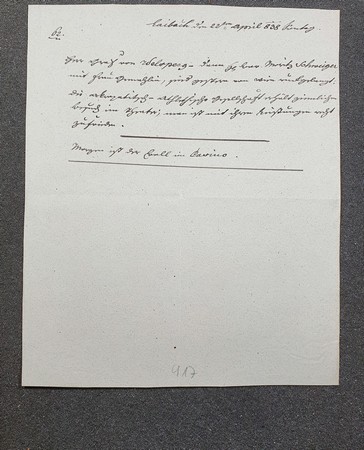 62.
Laibach den 22ten April 838 Sontag
Der Graf von Welsperg dann H. Bar. Moritz Schweiger
mit Frau Gemahlin, sind gestern von hier
die akrobatisch-athletische Gesellschaft erhält ziemlichen
Besuch im Theater, man ist mit ihren Leistungen recht
zufrieden.
Morgen ist der Ball in Casino.
417